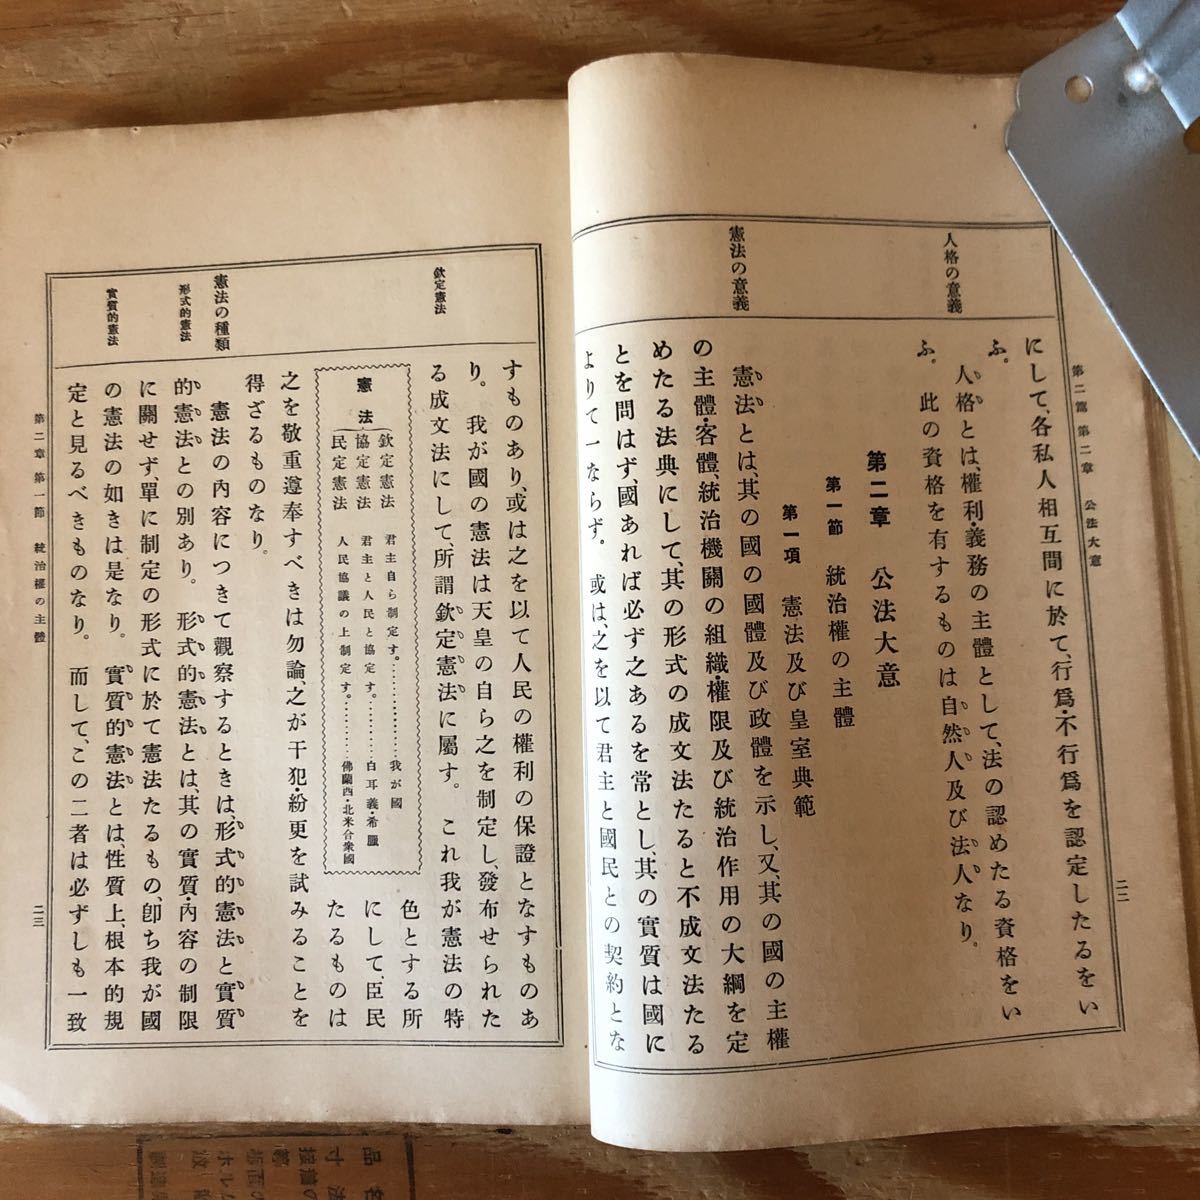 第二篇 第二章 公法大意
二二
人格の意義
憲法の意義
にして、各私人相互間に於て、行爲・不行爲を認定したるをい
ふ。
人格とは、權利・義務の主體として、法の認めたる資格をい
ふ。此の資格を有するものは自然人及び法人なり。
第二章 公法大意
第一節 統治權の主體
第一項 憲法及び皇室典範
憲法とは、其の國の國體及び政體を示し、又、其の國の主權
の主體・客體、統治機關の組織・權限及び統治作用の大綱を定
めたる法典にして、其の形式の成文法たると不成文法たる
とを問はず、國あれば必ず之あるを常とし、其の實質は國に
よりて一ならず。或は、之を以て君主と國民との契約とな
欽定憲法
憲法の種類
形式的憲法
實質的憲法
すものあり、或は之を以て人民の權利の保證となすものあ
り。我が國の憲法は天皇の自ら之を制定し、發布せられた
る成文法にして、所謂欽定憲法に屬す。これ我が憲法の特
色とする所
にして、臣民
たるものは
憲法
欽定憲法 君主自ら制定す。…………我が國
協定憲法 君主と人民と協定す。………白耳義・希臘
民定憲法 人民協議の上制定す。………佛蘭西・北米合衆國
之を敬重遵奉すべきは勿論、之が干犯・紛更を試みることを
得ざるものなり。
憲法の内容につきて觀察するときは、形式的憲法と實質
的憲法との別あり。形式的憲法とは、其の實質・内容の制限
に關せず、單に制定の形式に於て憲法たるもの、卽ち我が國
の憲法の如きは是なり。實質的憲法とは、性質上、根本的規
定と見るべきものなり。而して、この二者は必ずしも一致
第二章 第一節 統治權の主體
二三
品名
寸法